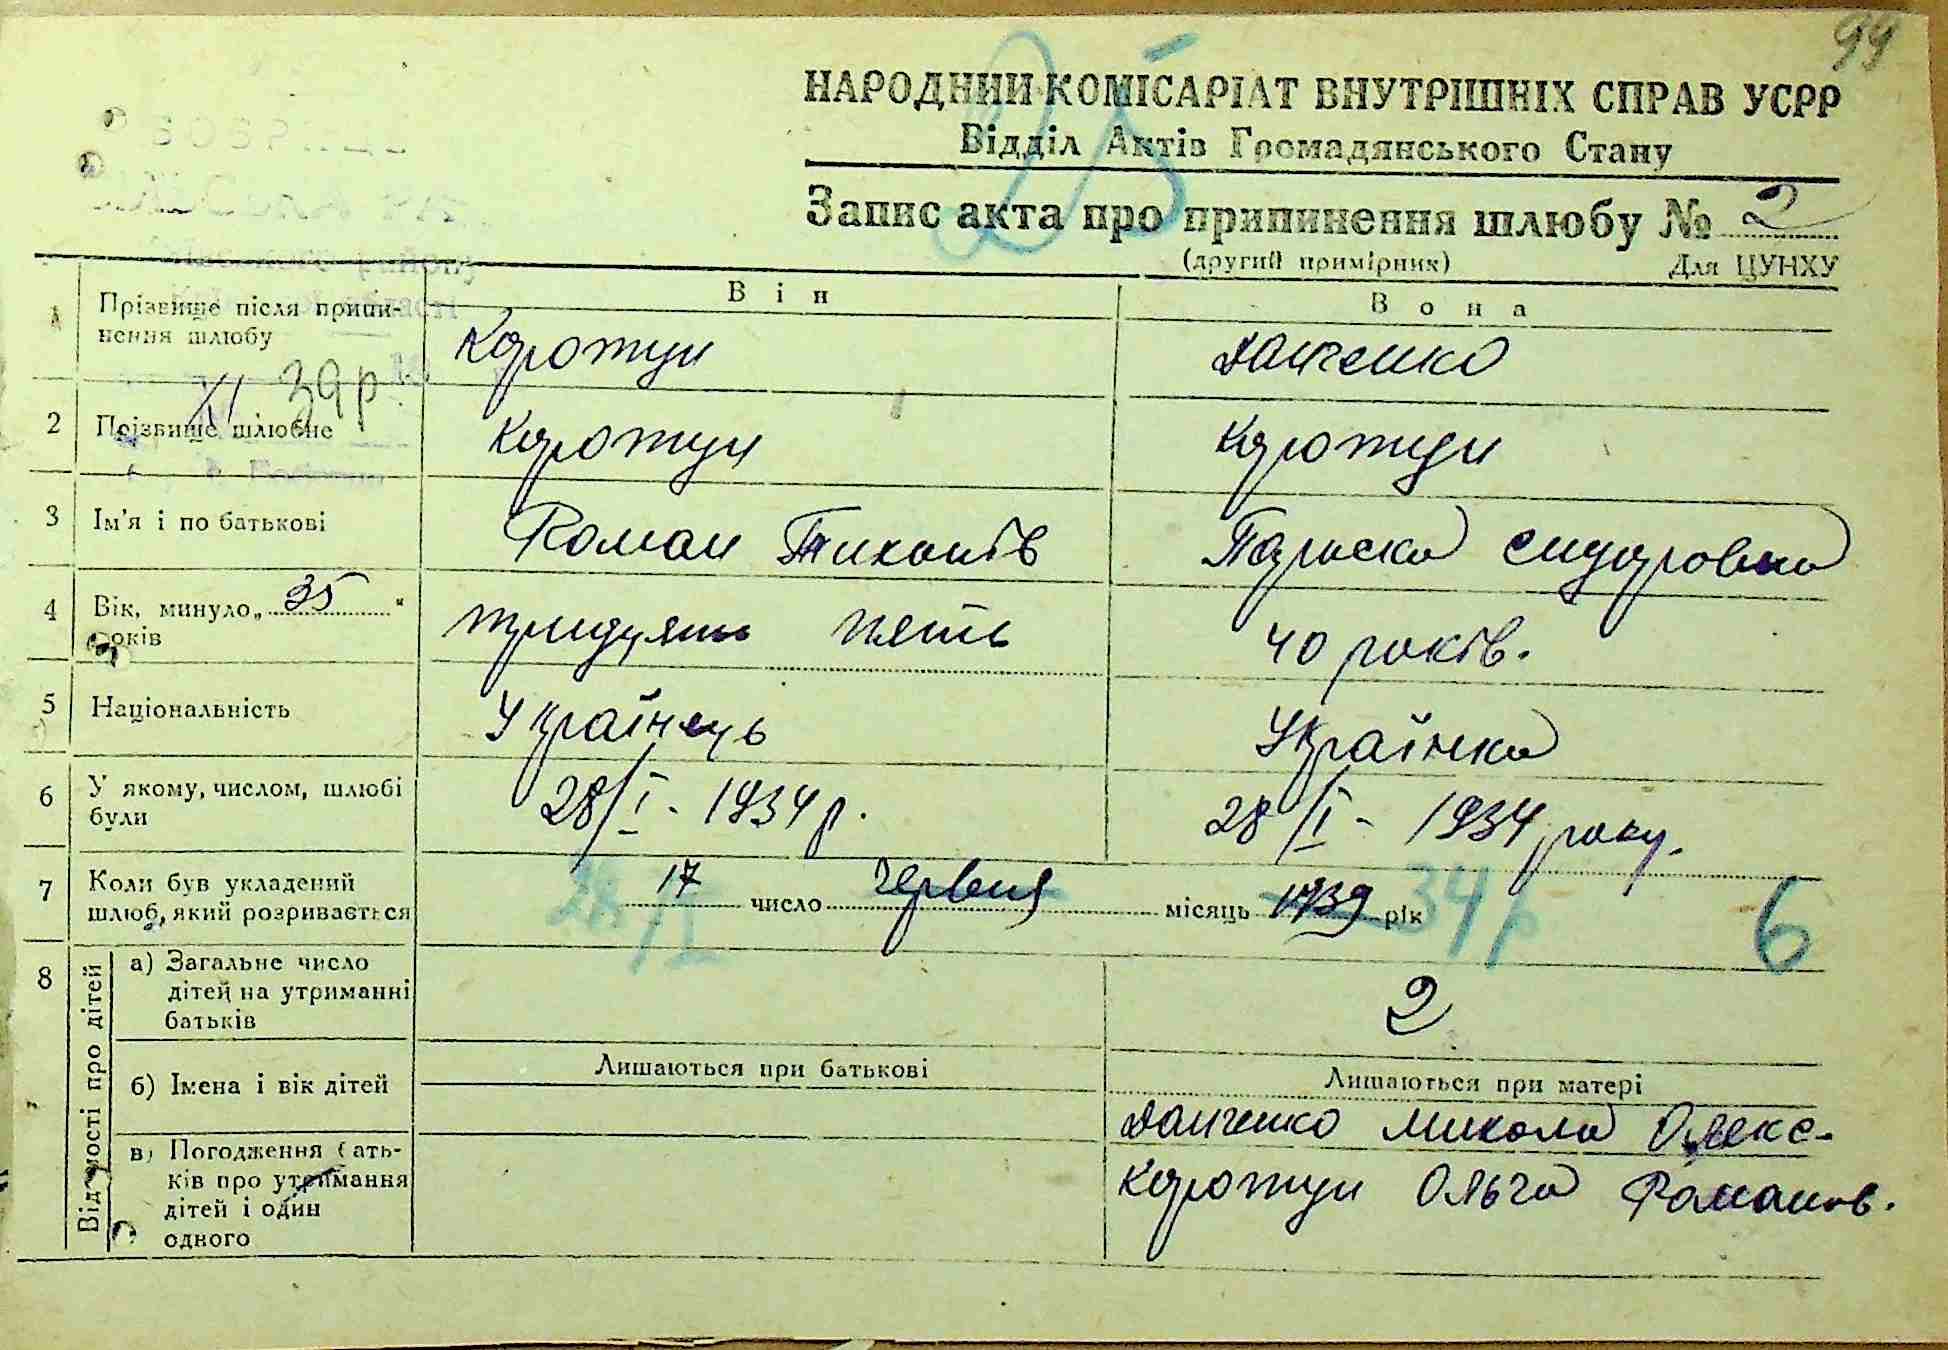 99
25
НАРОДНИЙ КОМІСАРІАТ ВНУТРІШНІХ СПРАВ УСРР
Відділ Актів Громадянського Стану
Запис акта про припинення шлюбу № 2
(другий примірник) Для ЦУНХУ
Він Вона
1 Прізвище після припинення шлюбу Коротун Данченко
XI 39р
2 Прізвище шлюбне Коротун Коротун
3 Ім'я і по батькові Роман Тихонів Параска Сидоровна
4 Вік, минуло „35“ років тридцять пять 40 років.
5 Національність Українець Українка
6 У якому, числом, шлюбі були 28/I - 1934 р. 28/I - 1934 року.
7 Коли був укладений шлюб, який розривається 17 число червня місяць 1939 рік
28/I 34 р 6
8 Відомості про дітей
а) Загальне число дітей на утриманні батьків 2
б) Імена і вік дітей Лишаються при батькові Лишаються при матері
Данченко Микола Олекс-
в) Погодження батьків про утримання дітей і один одного Коротун Ольга Романов.